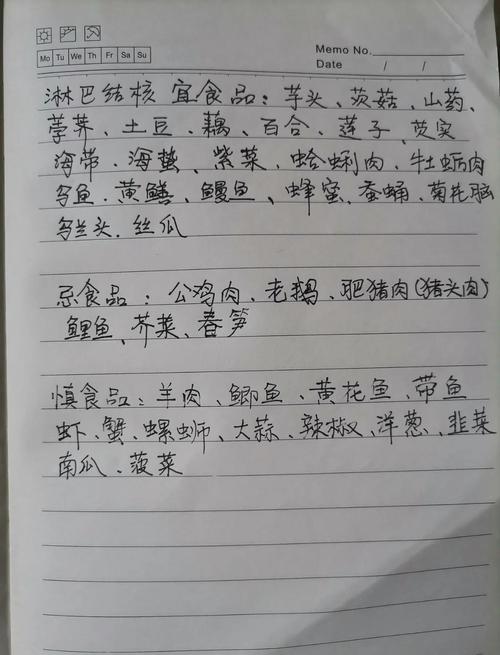 Mo Tu We Th Fr Sa Su
Memo No.
Date / /
淋巴结核 宜食品：芋头、茨菇、山药、
荸荠、土豆、藕、百合、莲子、芡实
海带、海蜇、紫菜、蛤蜊肉、牡蛎肉
乌鱼、黄鳝、鳗鱼、蜂蜜、蚕蛹、菊花脑
马兰头、丝瓜
忌食品：公鸡肉、老鹅、肥猪肉(猪头肉)
鲤鱼、芥菜、春笋
慎食品：羊肉、鲫鱼、黄花鱼、带鱼
虾、蟹、螺蛳、大蒜、辣椒、洋葱、韭菜
南瓜、菠菜